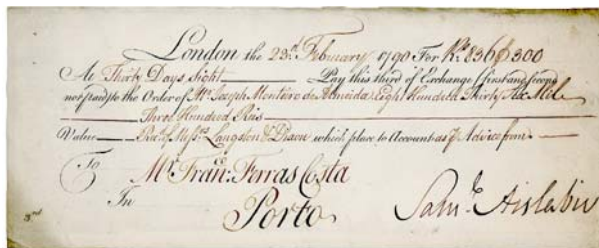 London the 23.d February 1790 For Rs. 836$300
At Thirty Days Sight Pay this third of Exchange first and second
not paid to the Order of Mr. Joseph Monteiro de Almeida Eight Hundred Thirty Six Mil
Three Hundred Reis
Value Rec.d of Mess.rs Langston & Dixon which place to Account as p Advice from
To Mr. Fran.co Ferras Costa
In Porto Sam.l Aislabie
3rd